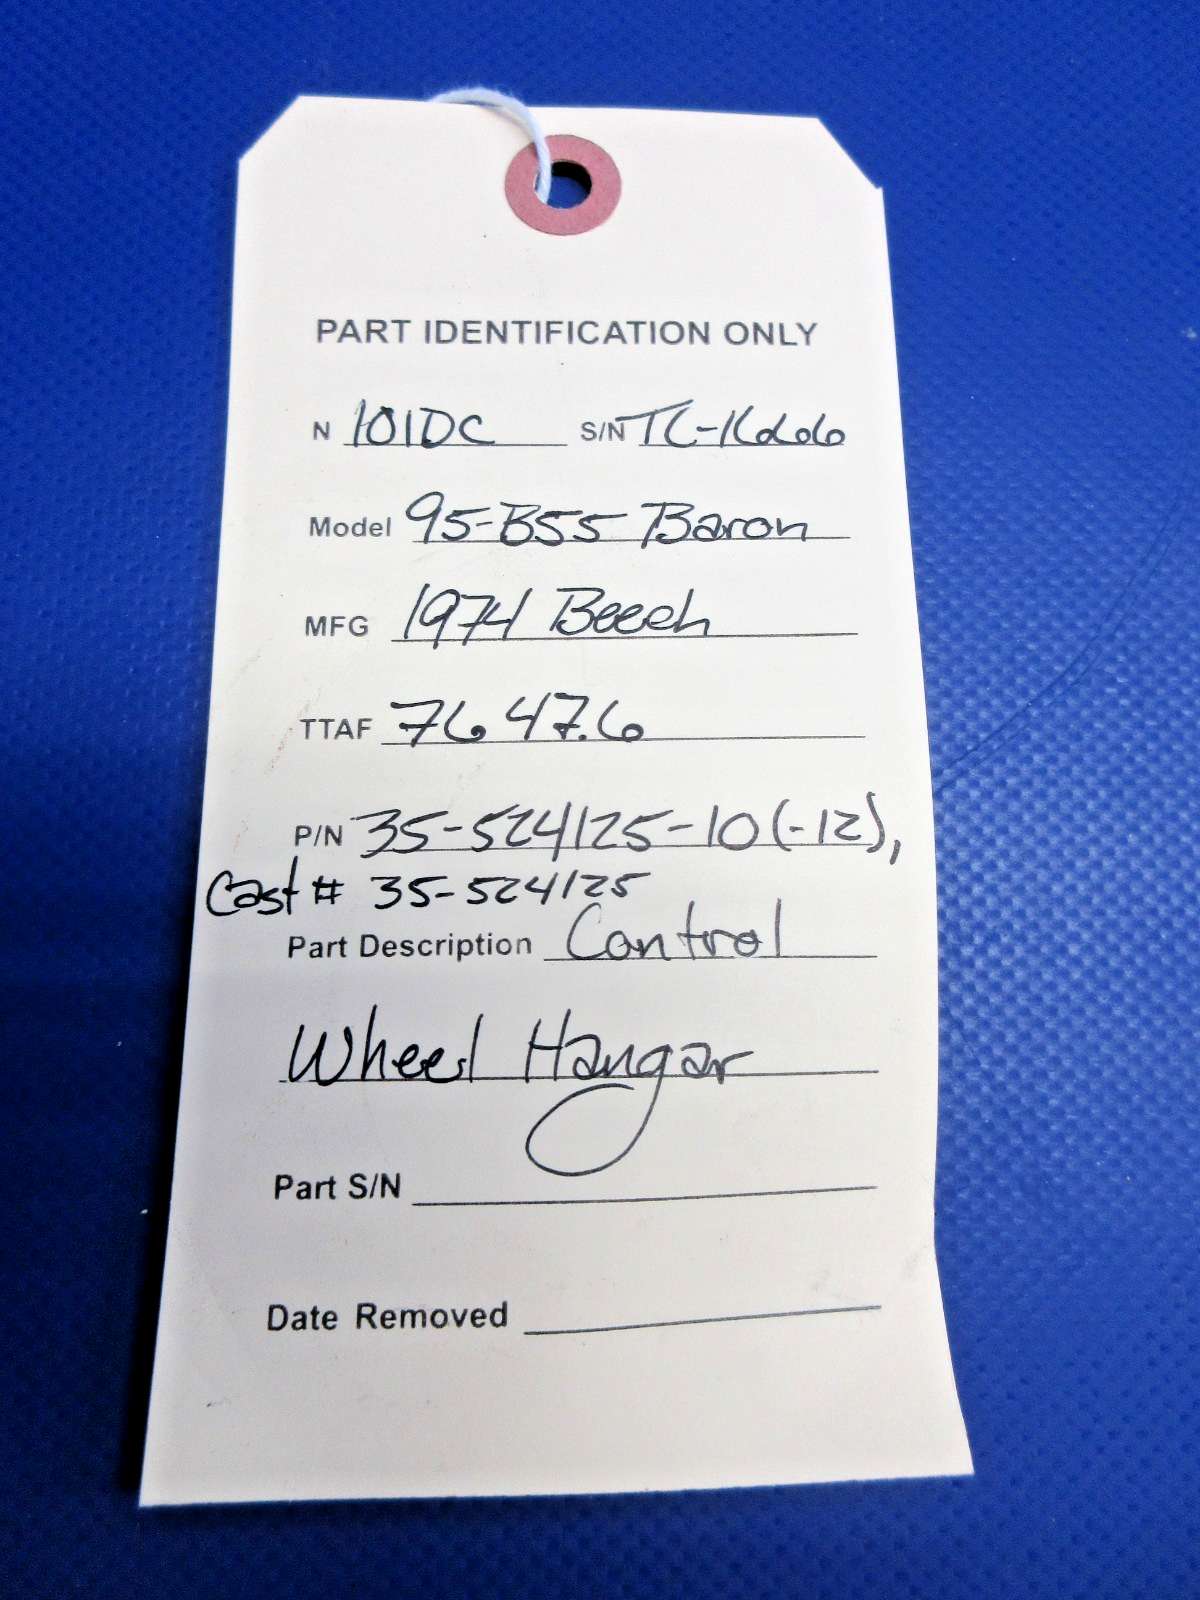 PART IDENTIFICATION ONLY
N 101DC S/N TC-1666
Model 95-B55 Baron
MFG 1974 Beech
TTAF 7647.6
P/N 35-524125-10(-12),
Cast # 35-524125
Part Description Control
Wheel Hangar
Part S/N
Date Removed